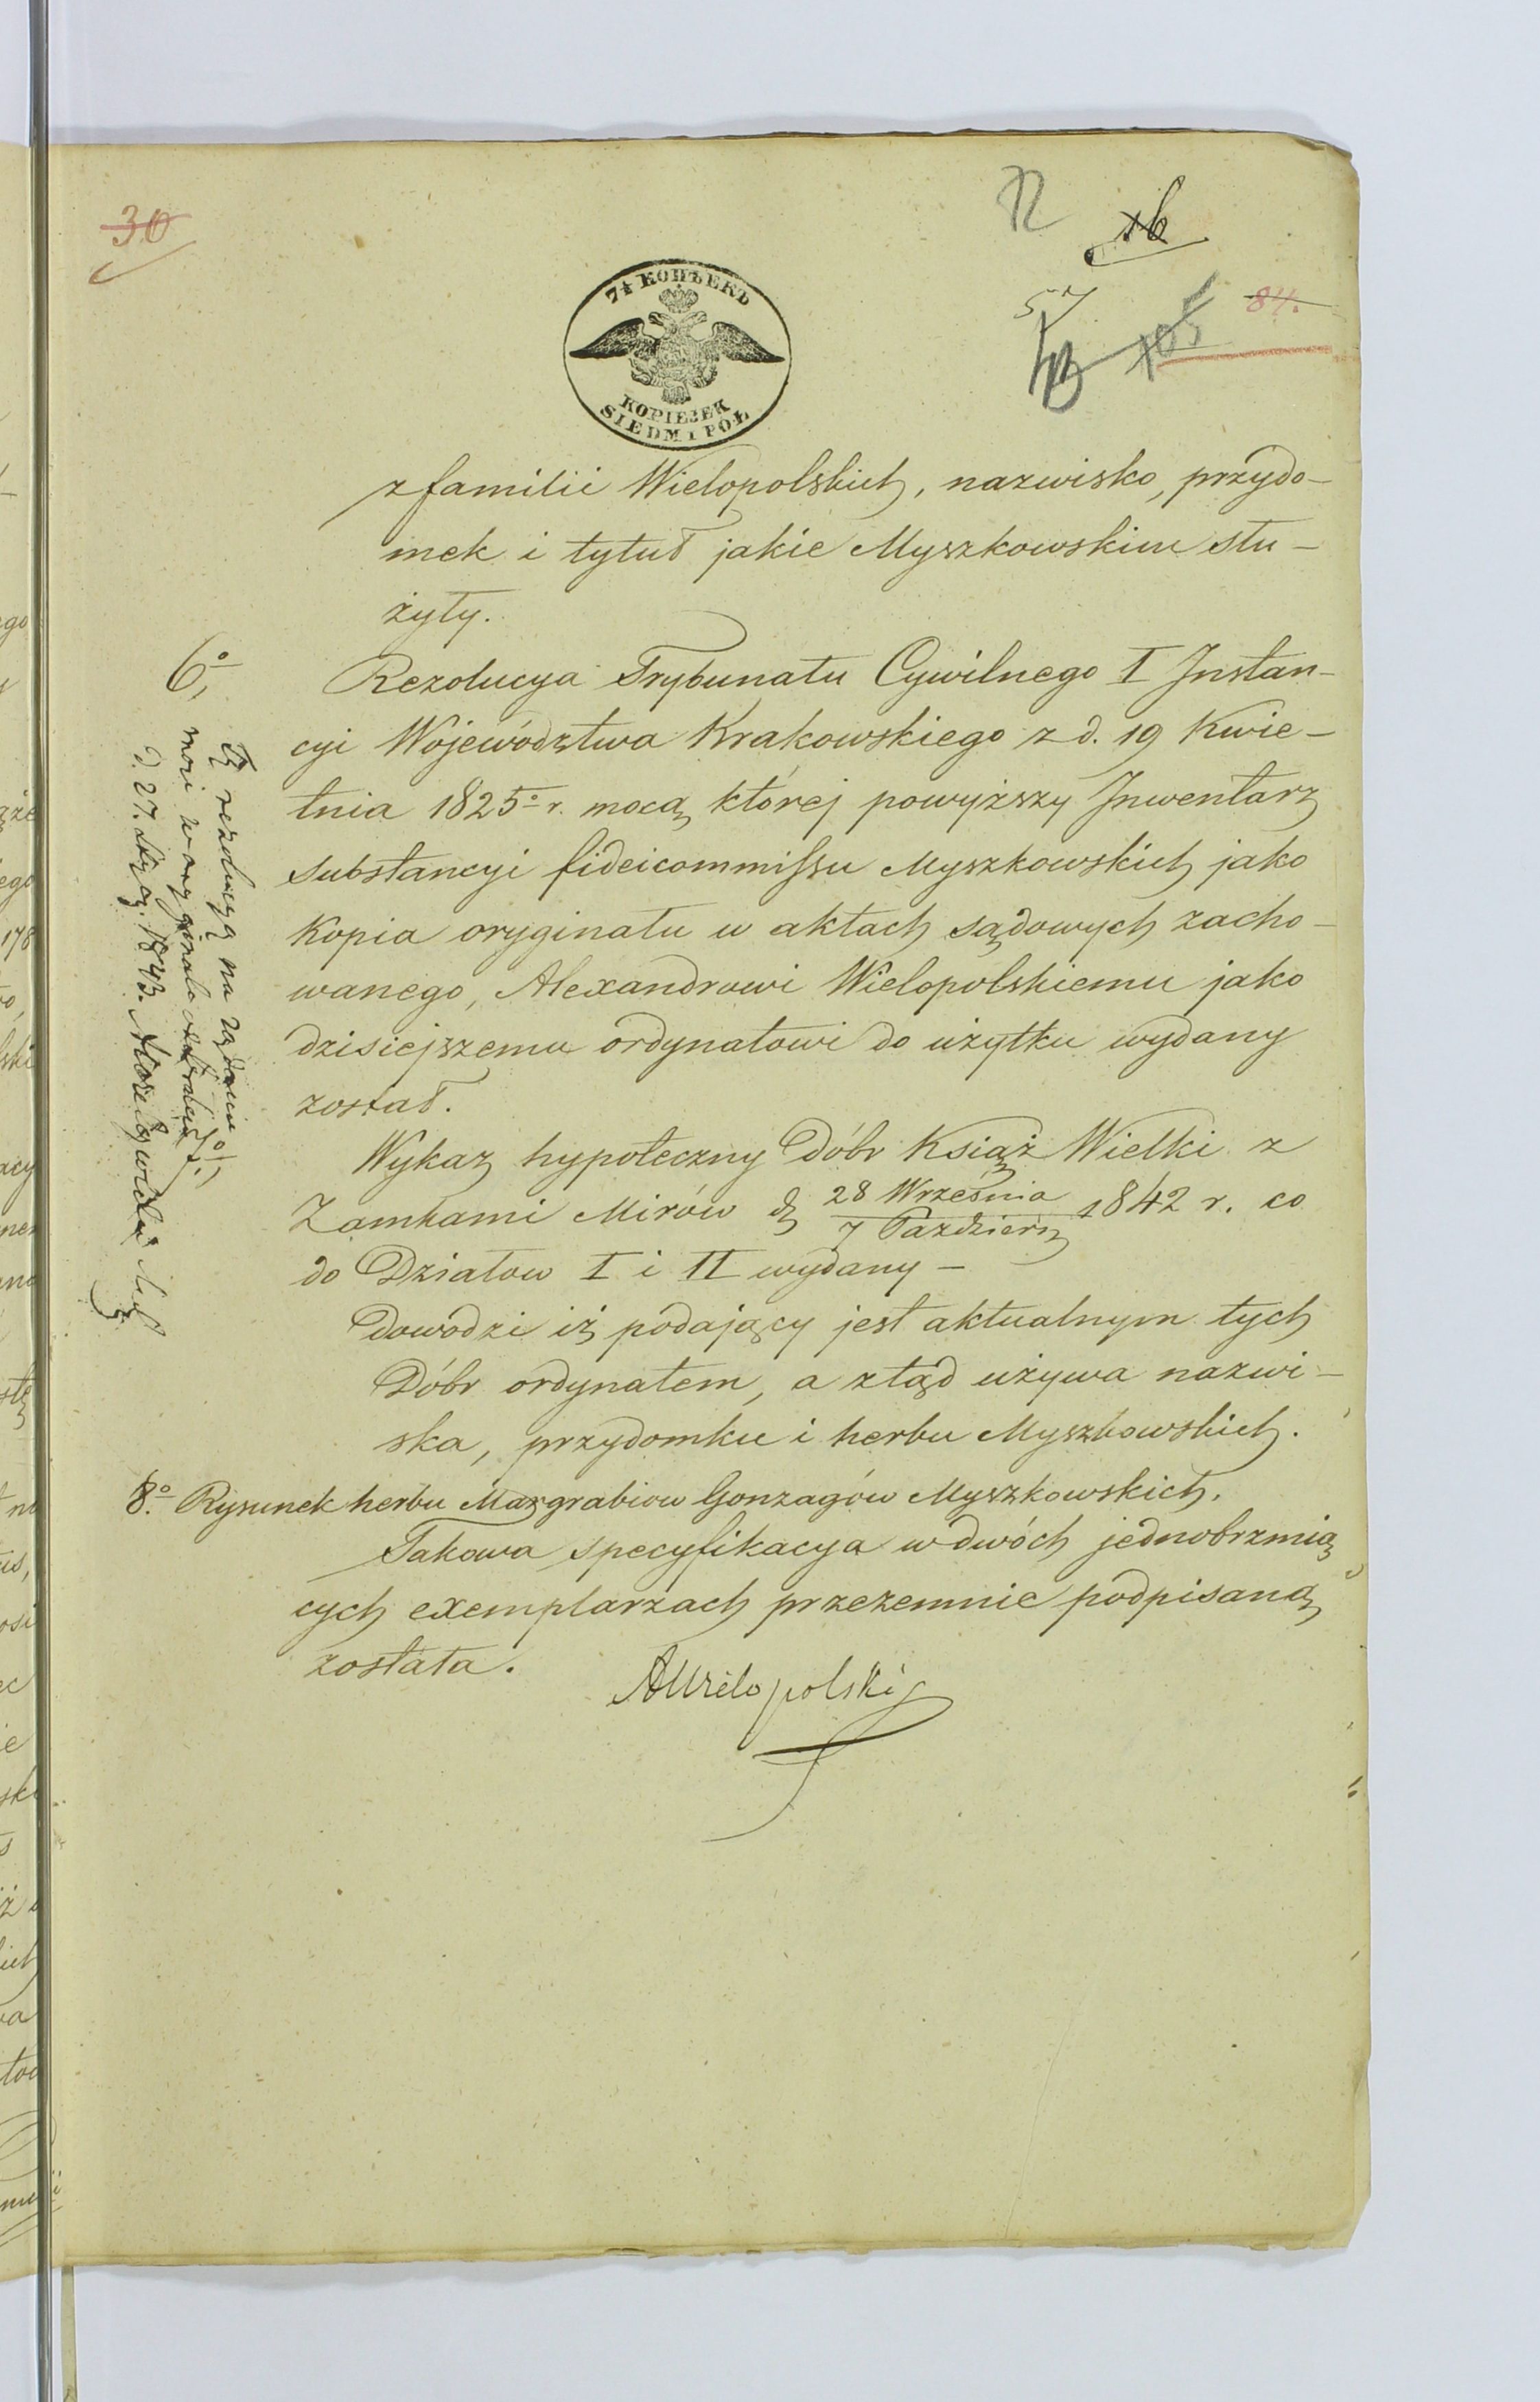 30
72
16
57
84.
105
7½ КОПѢЕКЪ
KOPIEJEK
SIEDM I PÓŁ
z familii Wielopolskich, nazwisko, przydo-
mek i tytuł jakie Myszkowskim słu-
żyły.
6º, Rezolucya Trybunału Cywilnego I Instan-
cyi Województwa Krakowskiego z d. 19 Kwie-
tnia 1825º r. mocą której powyższy Inwentarz
substancyi fideicommissu Myszkowskich jako
kopia oryginału w aktach sądowych zacho-
wanego, Alexandrowi Wielopolskiemu jako
dzisiejszemu ordynatowi do użytku wydany
został.
Wykaz hypoteczny Dóbr Książ Wielki z
Zamkami Mirów d. 28 Września / 7 Paździer. 1842 r. co
do Działow I i II wydany –
Dowodzi iż podający jest aktualnym tych
Dóbr ordynatem, a ztąd używa nazwi-
ska, przydomku i herbu Myszkowskich.
8º. Rysunek herbu Margrabiow Gonzagów Myszkowskich.
Takowa specyfikacya w dwóch jednobrzmią
cych exemplarzach przezemnie podpisaną
została.
AWielopolski
Tę rezolucyą na żądanie
w oryginale odebrałem
d. 27. 1843.